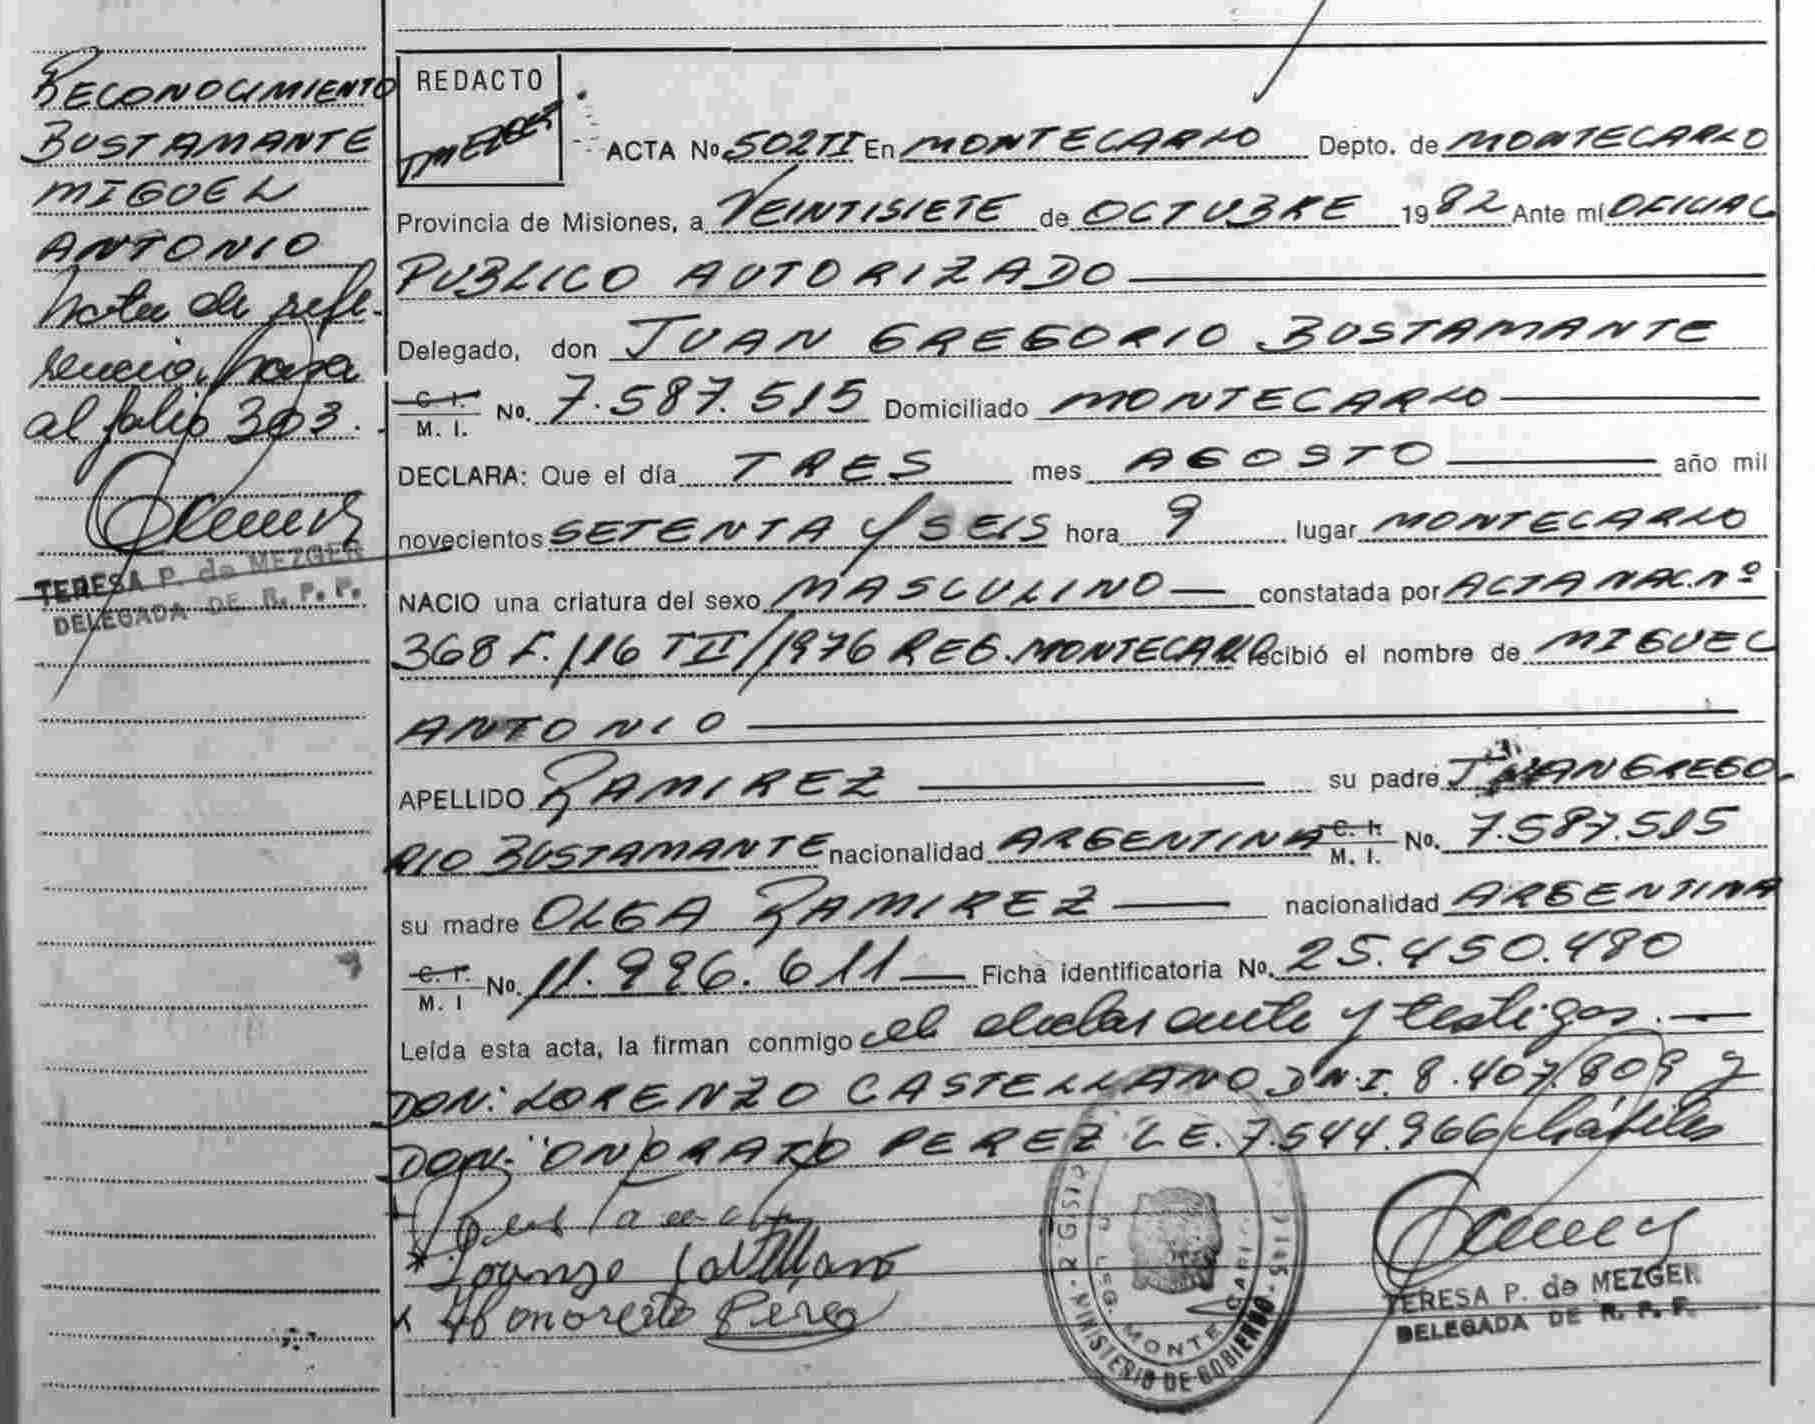 RECONOCIMIENTO
BUSTAMANTE
MIGUEL
ANTONIO
Nota de refe-
rencia pasa
al folio 303.
TERESA P. de MEZGER
DELEGADA DE R. P. P.
REDACTO
TMEZGER
ACTA No 502TI En MONTECARLO Depto. de MONTECARLO
Provincia de Misiones, a VEINTISIETE de OCTUBRE 1982 Ante mí OFICIAL
PUBLICO AUTORIZADO
Delegado, don JUAN GREGORIO BUSTAMANTE
C. I. M. I. No. 7.587.515 Domiciliado MONTECARLO
DECLARA: Que el día TRES mes AGOSTO año mil
novecientos SETENTA Y SEIS hora 9 lugar MONTECARLO
NACIO una criatura del sexo MASCULINO constatada por ACTA NAC. Nº
368 F. 116 TII/1976 REG. MONTECARLO recibió el nombre de MIGUEL
ANTONIO
APELLIDO RAMIREZ su padre JUAN GREGO-
RIO BUSTAMANTE nacionalidad ARGENTINA C. I. M. I. No. 7.587.515
su madre OLGA RAMIREZ nacionalidad ARGENTINA
C. I. M. I No. 11.996.611 Ficha identificatoria No. 25.450.480
Leída esta acta, la firman conmigo el declarante y testigos.
DON: LORENZO CASTELLANO D.N.I. 8.407.809 y
DON: ONORATO PEREZ L.E. 7.544.966 hábiles
Lorenzo Castellano
Honorato Perez
MINISTERIO DE GOBIERNO
MONTE CARLO
TERESA P. de MEZGER
DELEGADA DE R. P. P.